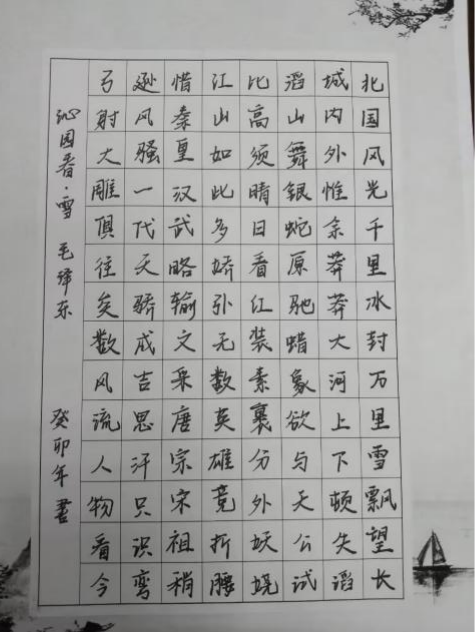 北国风光千里冰封万里雪飘望长
城内外惟余莽莽大河上下顿失滔
滔山舞银蛇原驰蜡象欲与天公试
比高须晴日看红装素裹分外妖娆
江山如此多娇引无数英雄竞折腰
惜秦皇汉武略输文采唐宗宋祖稍
逊风骚一代天骄成吉思汗只识弯
弓射大雕俱往矣数风流人物看今
沁园春·雪 毛泽东 癸卯年书